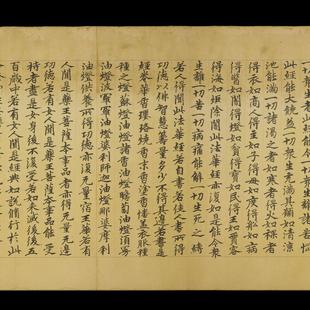 一切眾生者此經能令一切眾生離諸苦惱
此經能大饒益一切眾生充滿其願如清涼
池能滿一切諸渴乏者如寒者得火如裸者
得衣如商人得主如子得母如度得船如病
得醫如闇得燈如貧得寶如民得王如賈客
得海如炬除闇此法華經亦復如是能令眾
生離一切苦一切病痛能解一切生死之縛
若人得聞此法華經若自書若使人書所得
功德以佛智慧籌量多少不得其邊若書是
經卷華香瓔珞燒香末香塗香幡蓋衣服種
種之燈蘇燈油燈諸香油燈瞻蔔油燈須曼那
油燈波羅羅油燈婆利師迦油燈那婆摩利
油燈供養所得功德亦復无量宿王華若有
人聞是藥王菩薩本事品者亦得无量无邊
功德若有女人聞是藥王菩薩本事品能受
持者盡是女身後不復受若如來滅後後五
百歲中若有女人聞是經典如說修行於此